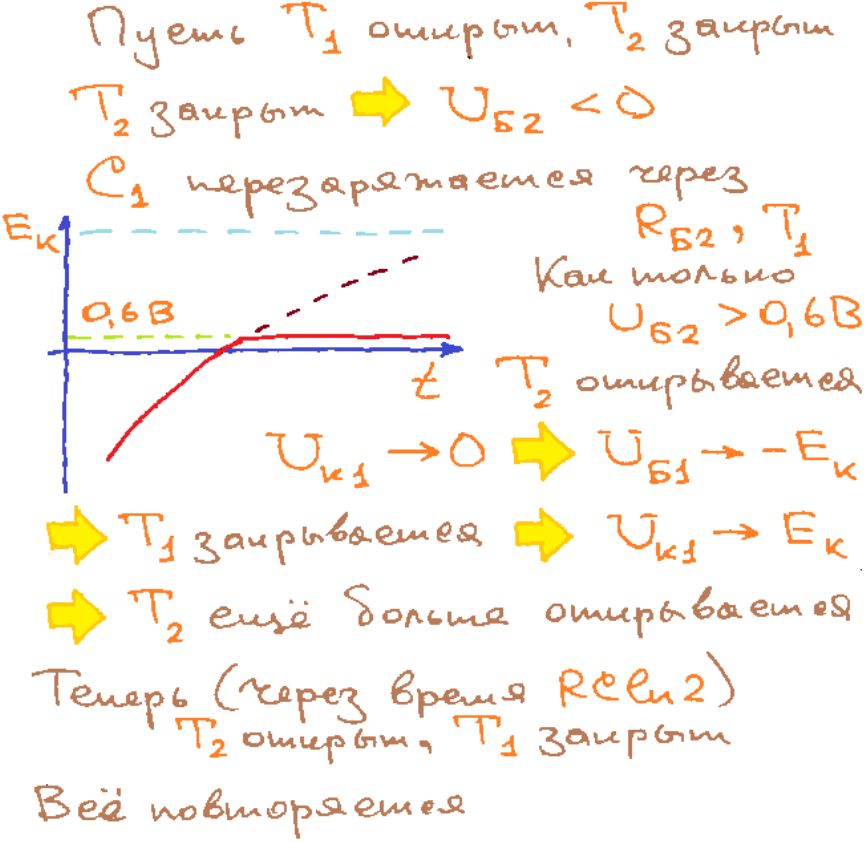 Пусть T₁ открыт, T₂ закрыт
T₂ закрыт ➡ U_Б2 < 0
C₁ перезаряжается через
R_Б2, T₁
E_K
Как только
0,6 В
U_Б2 > 0,6 В
t
T₂ открывается
U_K1 → 0 ➡ U_Б1 → -E_K
➡ T₁ закрывается ➡ U_K1 → E_K
➡ T₂ ещё больше открывается
Теперь (через время RC ln 2)
T₂ открыт, T₁ закрыт
Всё повторяется